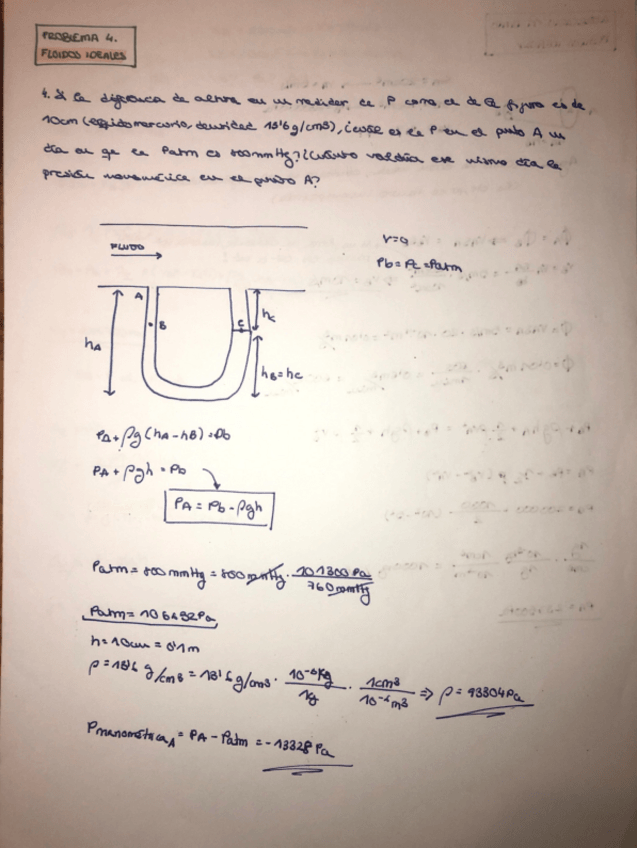 PROBLEMA 4.
FLUIDOS IDEALES
4. Si la diferencia de altura en un medidor de P como el de la figura es de
10cm (líquido mercurio, densidad 13'6 g/cm3), ¿cuál es la P en el punto A un
día en que la Patm es 800mmHg? ¿Cuánto valdría ese mismo día la
presión manométrica en el punto A?
FLUIDO
V=0
Pb = Pc = Patm
A
B
C
hc
hA
hB=hc
PA + ρg (hA - hB) = Pb
PA + ρgh = Pb
PA = Pb - ρgh
Patm = 800 mmHg = 800 mmHg · 101300 Pa / 760 mmHg
Patm = 106632 Pa
h = 10cm = 0'1m
ρ = 13'6 g/cm3 = 13'6 g/cm3 · 10-3 Kg / 1g · 1cm3 / 10-6 m3 => ρ = 93304 Pa
Pmanométrica A = PA - Patm = - 13328 Pa